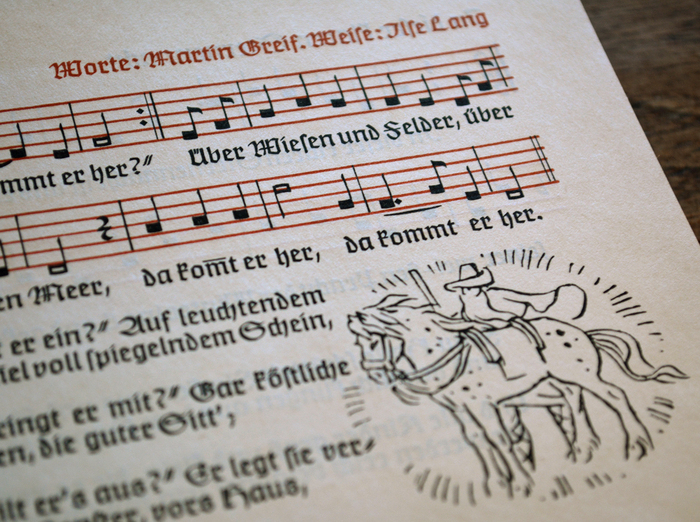 Worte: Martin Greif. Weise: Ilse Lang
mmt er her?" Über Wiesen und Felder, über
en Meer, da kom̅t er her, da kommt er her.
er ein?" Auf leuchtendem
iel voll spiegelndem Schein,
ringt er mit?" Gar köstliche
en, die guter Sitt',
ilt er's aus?" Er legt sie ver-
vors Haus,